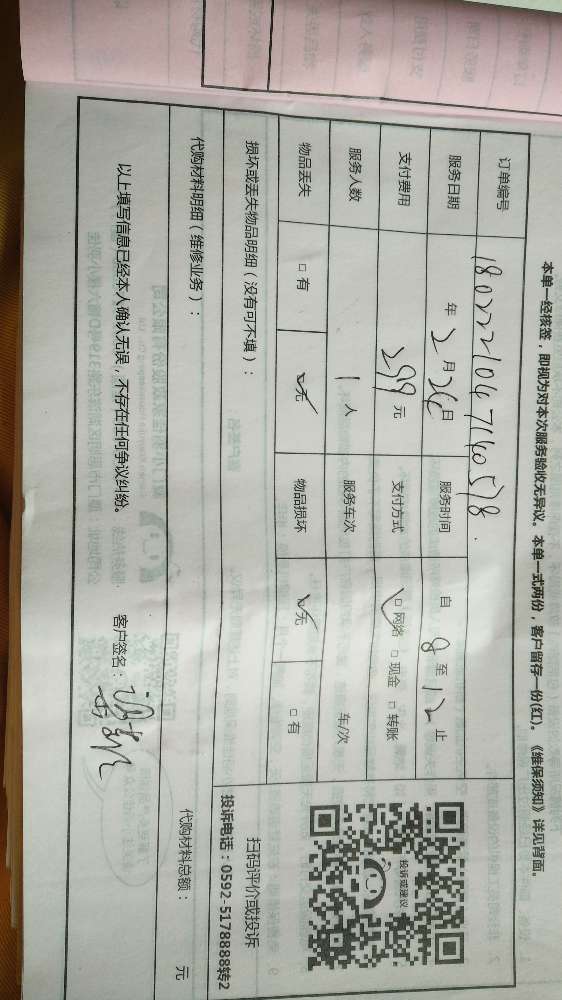 本单一经核签，即视为对本次服务验收无异议。本单一式两份，客户留存一份(红)。《维保须知》详见背面。
订单编号 1802221047140578
服务日期 年 2 月 26 日 服务时间 自 8 至 12 止
支付费用 299 元 支付方式 ☑ 网络 □ 现金 □ 转账
服务人数 1 人 服务车次 车/次
物品丢失 □ 有 ☑ 无 物品损坏 ☑ 无 □ 有
投诉或建议
损坏或丢失物品明细（没有可不填）：
扫码评价或投诉
投诉电话：0592-5178888转2
代购材料明细（维修业务）：
代购材料总额： 元
以上填写信息已经本人确认无误，不存在任何争议纠纷。 客户签名：